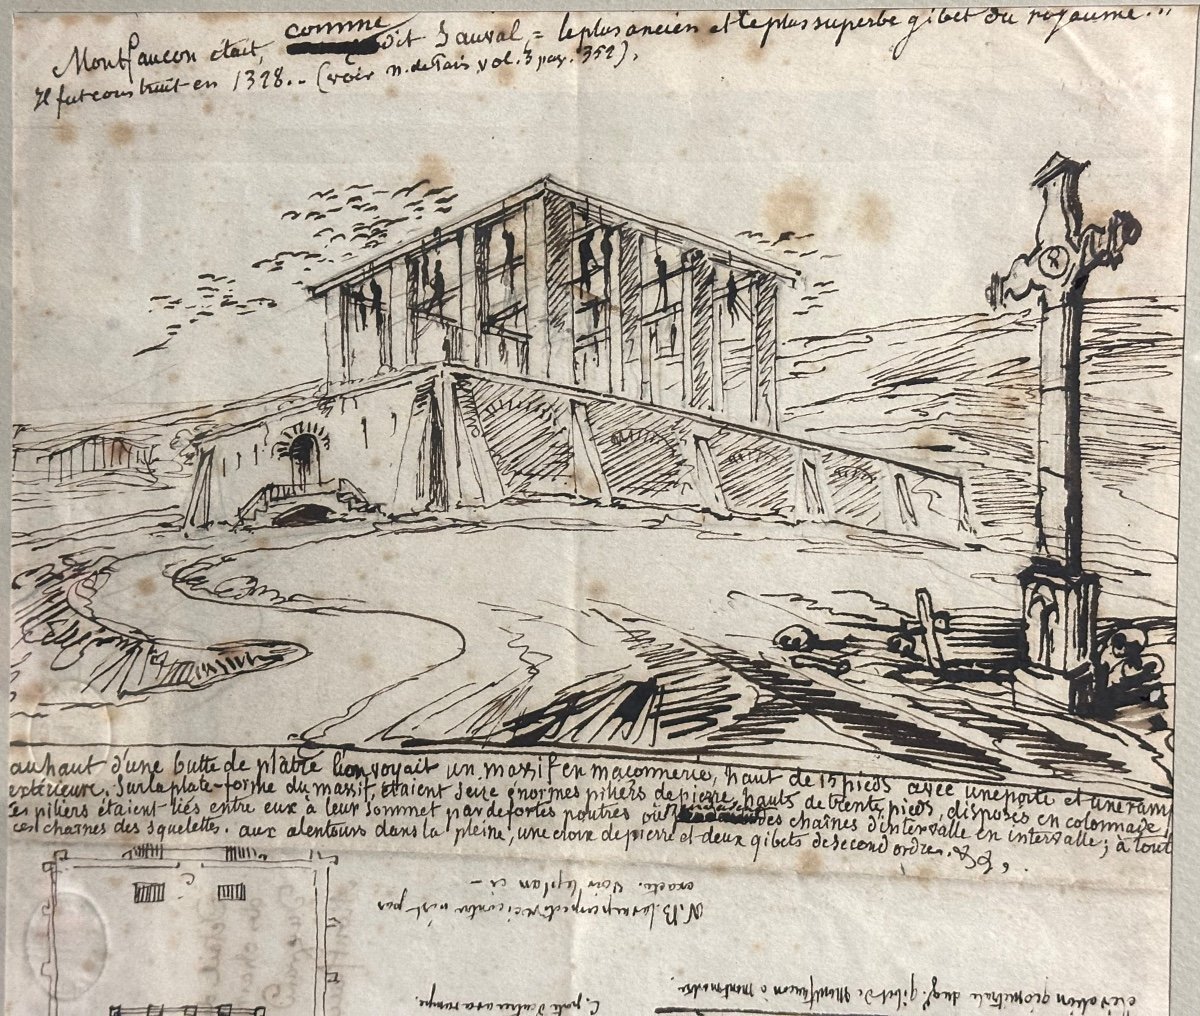 Montfaucon était, comme dit Sauval, = le plus ancien et le plus superbe gibet du royaume...
Il fut construit en 1328.. (voir n. de Paris, vol. 3 pag. 352).
au haut d'une butte de plâtre l'on voyait un massif en maçonnerie, haut de 15 pieds avec une porte et une ramp
extérieure. Sur la plate-forme du massif, étaient seize énormes piliers de pierre, hauts de trente pieds, disposés en colonnade,
ces piliers étaient liés entre eux à leur sommet par de fortes poutres où des chaînes d'intervalle en intervalle; à tout
ces chaînes des squelettes. aux alentours dans la pleine, une croix de pierre et deux gibets de second ordre. &&.
N.B. la perspective ci contre n'est pas
exacte. voir le plan ci -
C. porte d'entrée avec rampe.
élévation géométrale du gd. gibet de Montfaucon à montmartre.